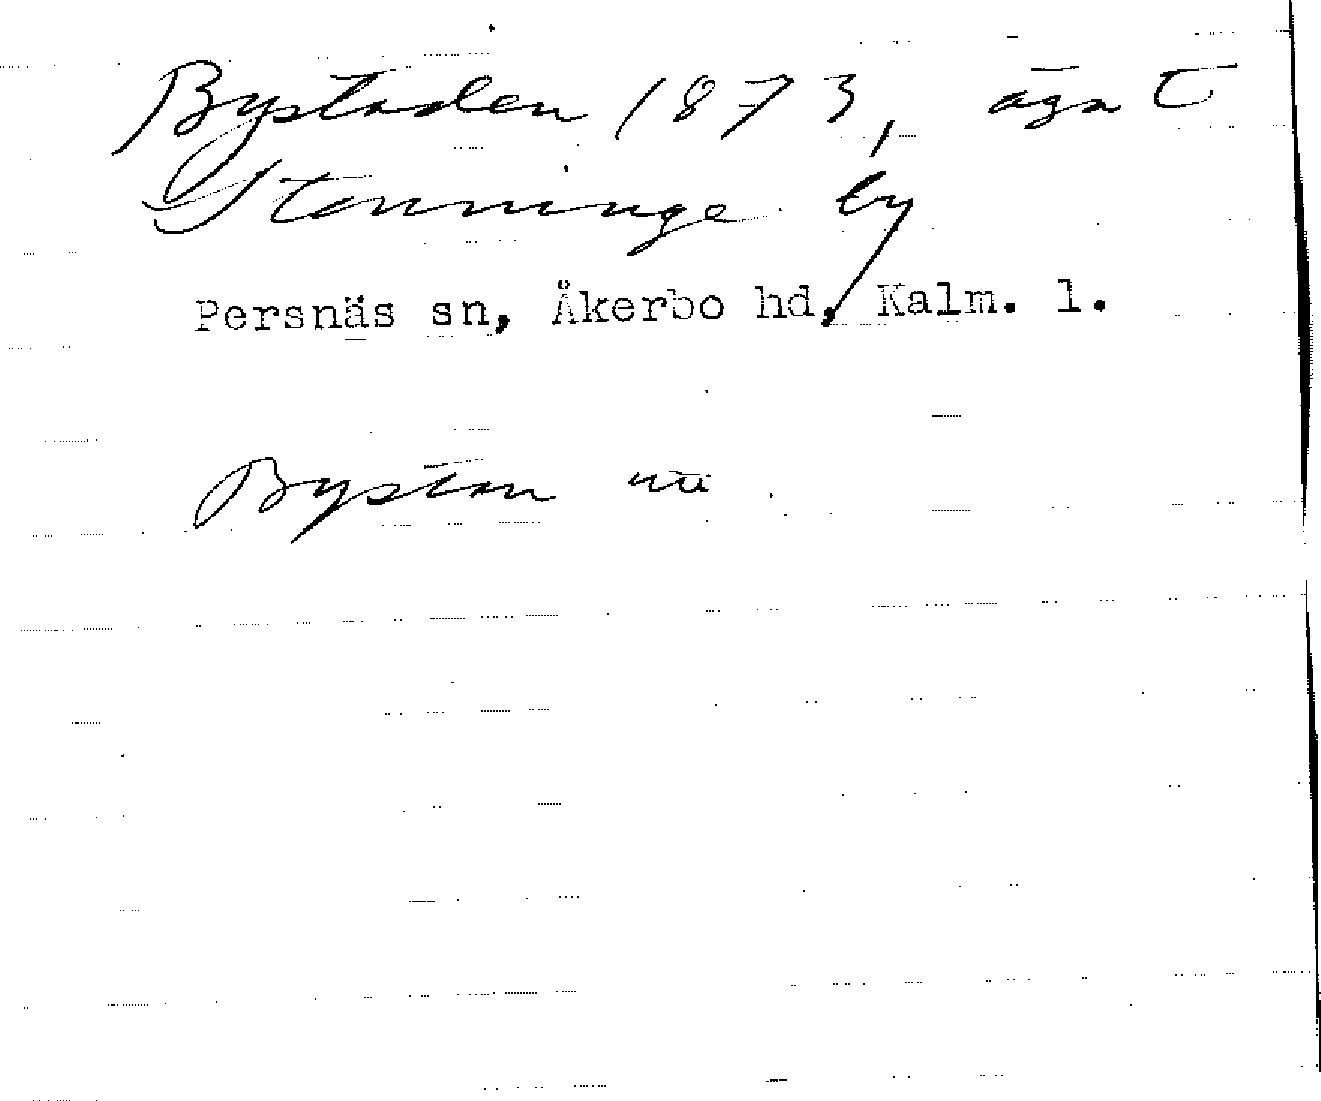 Bystaden 1873, äga t
Stenninge by
Persnäs sn, Åkerbo hd, Kalm. l.
Bystan